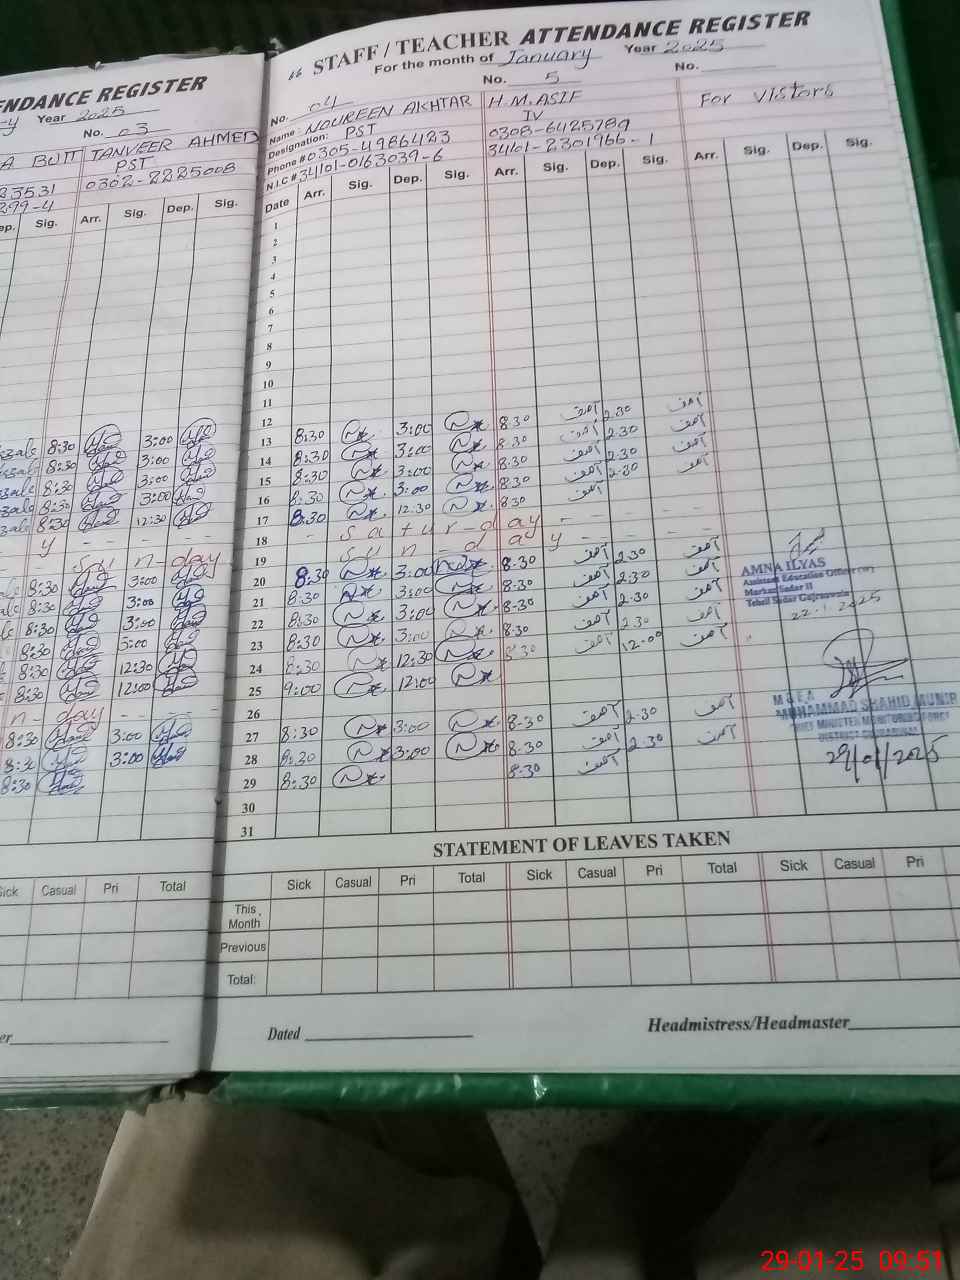 ENDANCE REGISTER
Year 2025
No. 03
A BUTT TANVEER AHMED
PST
23531 0302-2225008
299-4
ep. Sig. Arr. Sig. Dep. Sig.
8:30 3:00
8:30 3:00
8:30 3:00
8:30 3:00
8:30 12:30
y - - - - -
sun-day
8:30 3:00
8:30 3:00
8:30 3:00
8:30 3:00
8:30 12:30
8:30 12:00
n-day - - - -
8:30 3:00
8:30 3:00
8:30
Sick Casual Pri Total
er
66 STAFF / TEACHER ATTENDANCE REGISTER
For the month of January Year 2025
No. 04 No. 5 No.
Name: NOUREEN AKHTAR H.M.ASIF For Vistors
Designation: PST IV
Phone # 0305-4986423 0308-6425789
N.I.C # 34101-0163039-6 34101-2301966-1
Date Arr. Sig. Dep. Sig. Arr. Sig. Dep. Sig. Arr. Sig. Dep. Sig.
1
2
3
4
5
6
7
8
9
10
11
12
13 8:30 3:00 8:30 آصف 2.30 آصف
14 8:30 3:00 8:30 آصف 2.30 آصف
15 8:30 3:00 8:30 آصف 2.30 آصف
16 8:30 3:00 8:30 آصف 2.30 آصف
17 8:30 12.30 8:30 آصف
18 - Satur-day - - - -
19 Sun-day - - - -
20 8:30 3:00 8:30 آصف 2.30 آصف
21 8:30 3:00 8:30 آصف 2.30 آصف
22 8:30 3:00 8:30 آصف 2.30 آصف
23 8:30 3:00 8:30 آصف 2.30 آصف
24 8:30 12:30 8:30 آصف 12:00 آصف
25 9:00 12:00
26
27 8:30 3:00 8:30 آصف 2.30 آصف
28 8:30 3:00 8:30 آصف 2.30 آصف
29 8:30 8:30 آصف
30
31
AMNA ILYAS
Assistant Education Officer
Markaz Sadar II
Tehsil Sadar Gujranwala
22.1.2025
M & E A
MUHAMMAD SHAHID MUNIR
CHIEF MINISTER MONITORING FORCE
DISTRICT GUJRANWALA
29/01/2025
STATEMENT OF LEAVES TAKEN
Sick Casual Pri Total Sick Casual Pri Total Sick Casual Pri
This Month
Previous
Total:
Dated Headmistress/Headmaster
29-01-25 09:51